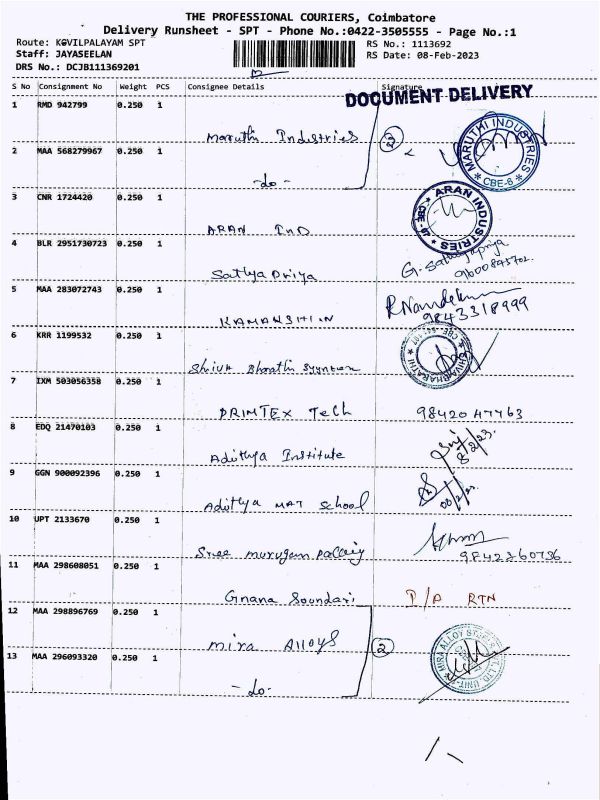 THE PROFESSIONAL COURIERS, Coimbatore
Delivery Runsheet - SPT - Phone No.:0422-3505555 - Page No.:1
Route: KOVILPALAYAM SPT
Staff: JAYASEELAN
DRS No.: DCJB111369201
RS No.: 1113692
RS Date: 08-Feb-2023
S No Consignment No Weight PCS Consignee Details Signature
DOCUMENT DELIVERY
1 RMD 942799 0.250 1
Maruthi Industries 2
MARUTHI INDUSTRIES * CBE-6 *
2 MAA 568279967 0.250 1
-do-
3 CNR 1724420 0.250 1
ARAN IND
ARAN INDUSTRIES
4 BLR 2951730723 0.250 1
Sathya Priya
5 MAA 283072743 0.250 1
9843318999
6 KRR 1199532 0.250 1
Shiva Bharathi
7 IXM 503056358 0.250 1
PRIMTEX Tech 9842047763
8 EDQ 21470103 0.250 1
Adithya Institute 8/2/23
9 GGN 900092396 0.250 1
Adithya MAT School
10 UPT 2133670 0.250 1
Sree murugan
11 MAA 298608051 0.250 1
Gnana Soundari RTN
12 MAA 298896769 0.250 1
Mira Alloys 2
MIRA ALLOY STEELS
13 MAA 296093320 0.250 1
-do-